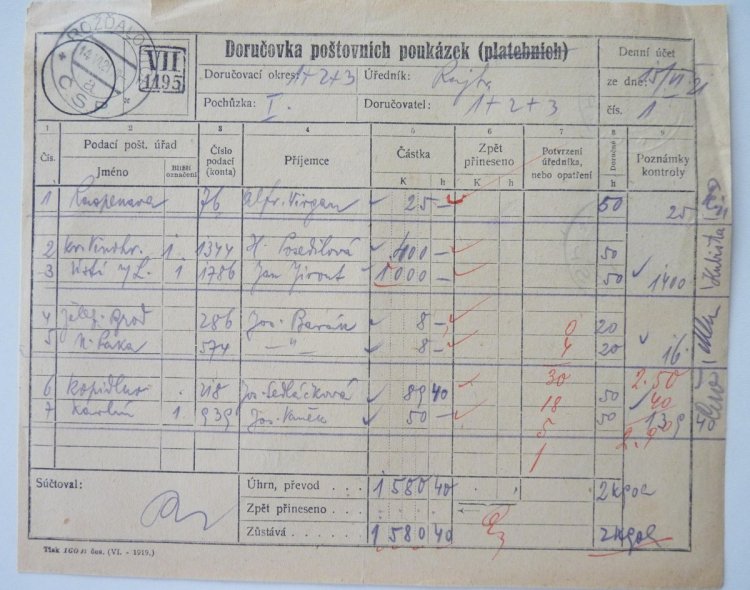 VII
1495
ČSP
a
Doručovka poštovních poukázek (platebních)
Doručovací okres: 1+2+3 Úředník:
Pochůzka: I. Doručovatel: 1+2+3
Denní účet
ze dne: 15/VI 21
čís. 1
1 2 3 4 5 6 7 8 9
Čís. Podací pošt. úřad Číslo podací (konta) Příjemce Částka Zpět přineseno Potvrzení úředníka, nebo opatření Doručné Poznámky kontroly
Jméno Bližší označení K h K h h
1 76 25 — 50 25
2 1. 1344 H. Posedilová 400 — 50
3 Ústí n/L. 1 1786 Jan Jirout 1000 — 50 1400
4 Želez. Brod 286 Jos. Barák 8 — 0 20
5 N. Paka 574 — " — 8 — 4 20 16
30 2.50
6 Kopidlno . 218 Jos. Sedláčková 89 40 18 50 40
7 Karlín 1. 939 Jos. Vaněk 50 — 5 50 139
1
Súčtoval:
Úhrn, převod 1580 40
Zpět přineseno
Zůstává 1580 40
Tisk IGO čes. (VI. - 1919.)